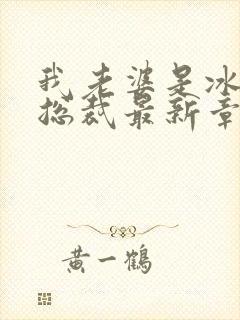 我老婆是冰
总裁最新章
黄一鹤